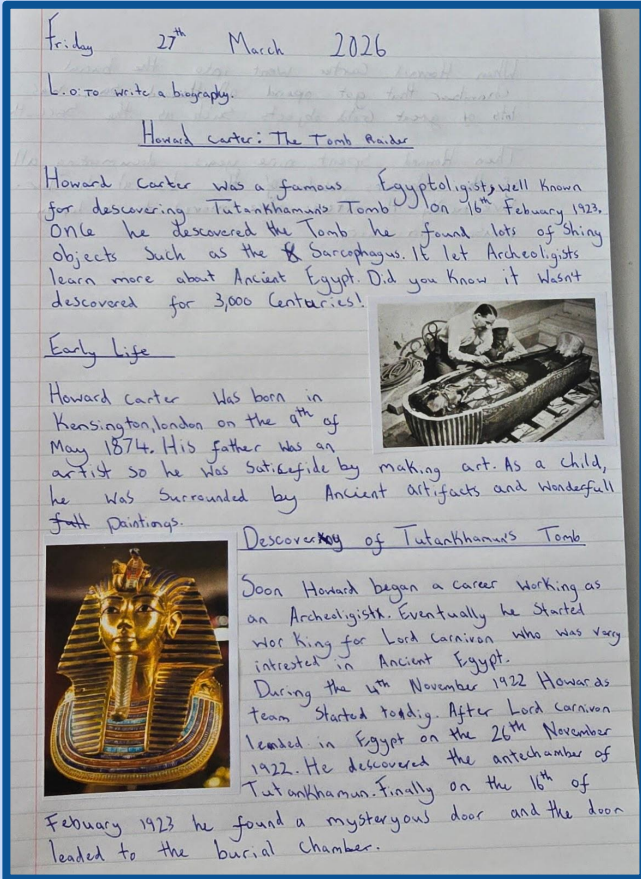 Friday 27th March 2026
L.o: To write a biography.
Howard carter: The Tomb Raider
Howard carter was a famous Egyptoligist, well known
for descovering Tutankhamun's Tomb on 16th Febuary 1923.
Once he descovered the Tomb he found lots of shiny
objects such as the Sarcophagus. It let Archeoligists
learn more about Ancient Egypt. Did you know it wasn't
descovered for 3,000 Centuries!
Early Life
Howard carter was born in
Kensington, london on the 9th of
May 1874. His father was an
artist so he was saticefide by making art. As a child,
he was surrounded by Ancient artifacts and wonderfull
paintings.
Descovery of Tutankhamun's Tomb
Soon Howard began a career working as
an Archeoligist. Eventually he started
working for Lord carnivon who was vary
intrested in Ancient Egypt.
During the 4th November 1922 Howards
team started to dig. After Lord carnivon
leanded in Egypt on the 26th November
1922. He descovered the antechamber of
Tutankhamun. Finally on the 16th of
Febuary 1923 he found a mysteryous door and the door
leaded to the burial chamber.